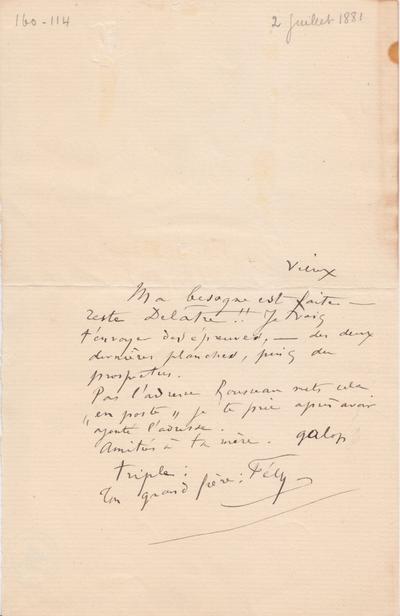 160-114
2 Juillet 1881
Vieux
Ma besogne est faite —
reste Delâtre !! Je vais
t'envoyer des épreuves, — des deux
dernières planches, puis du
prospectus.
Pas l'adresse Rousseau mets cela
„en poste" je te prie après avoir
ajouté l'adresse.
Amitiés à ta mère. galop
triple :
Ton grand frère : Fély